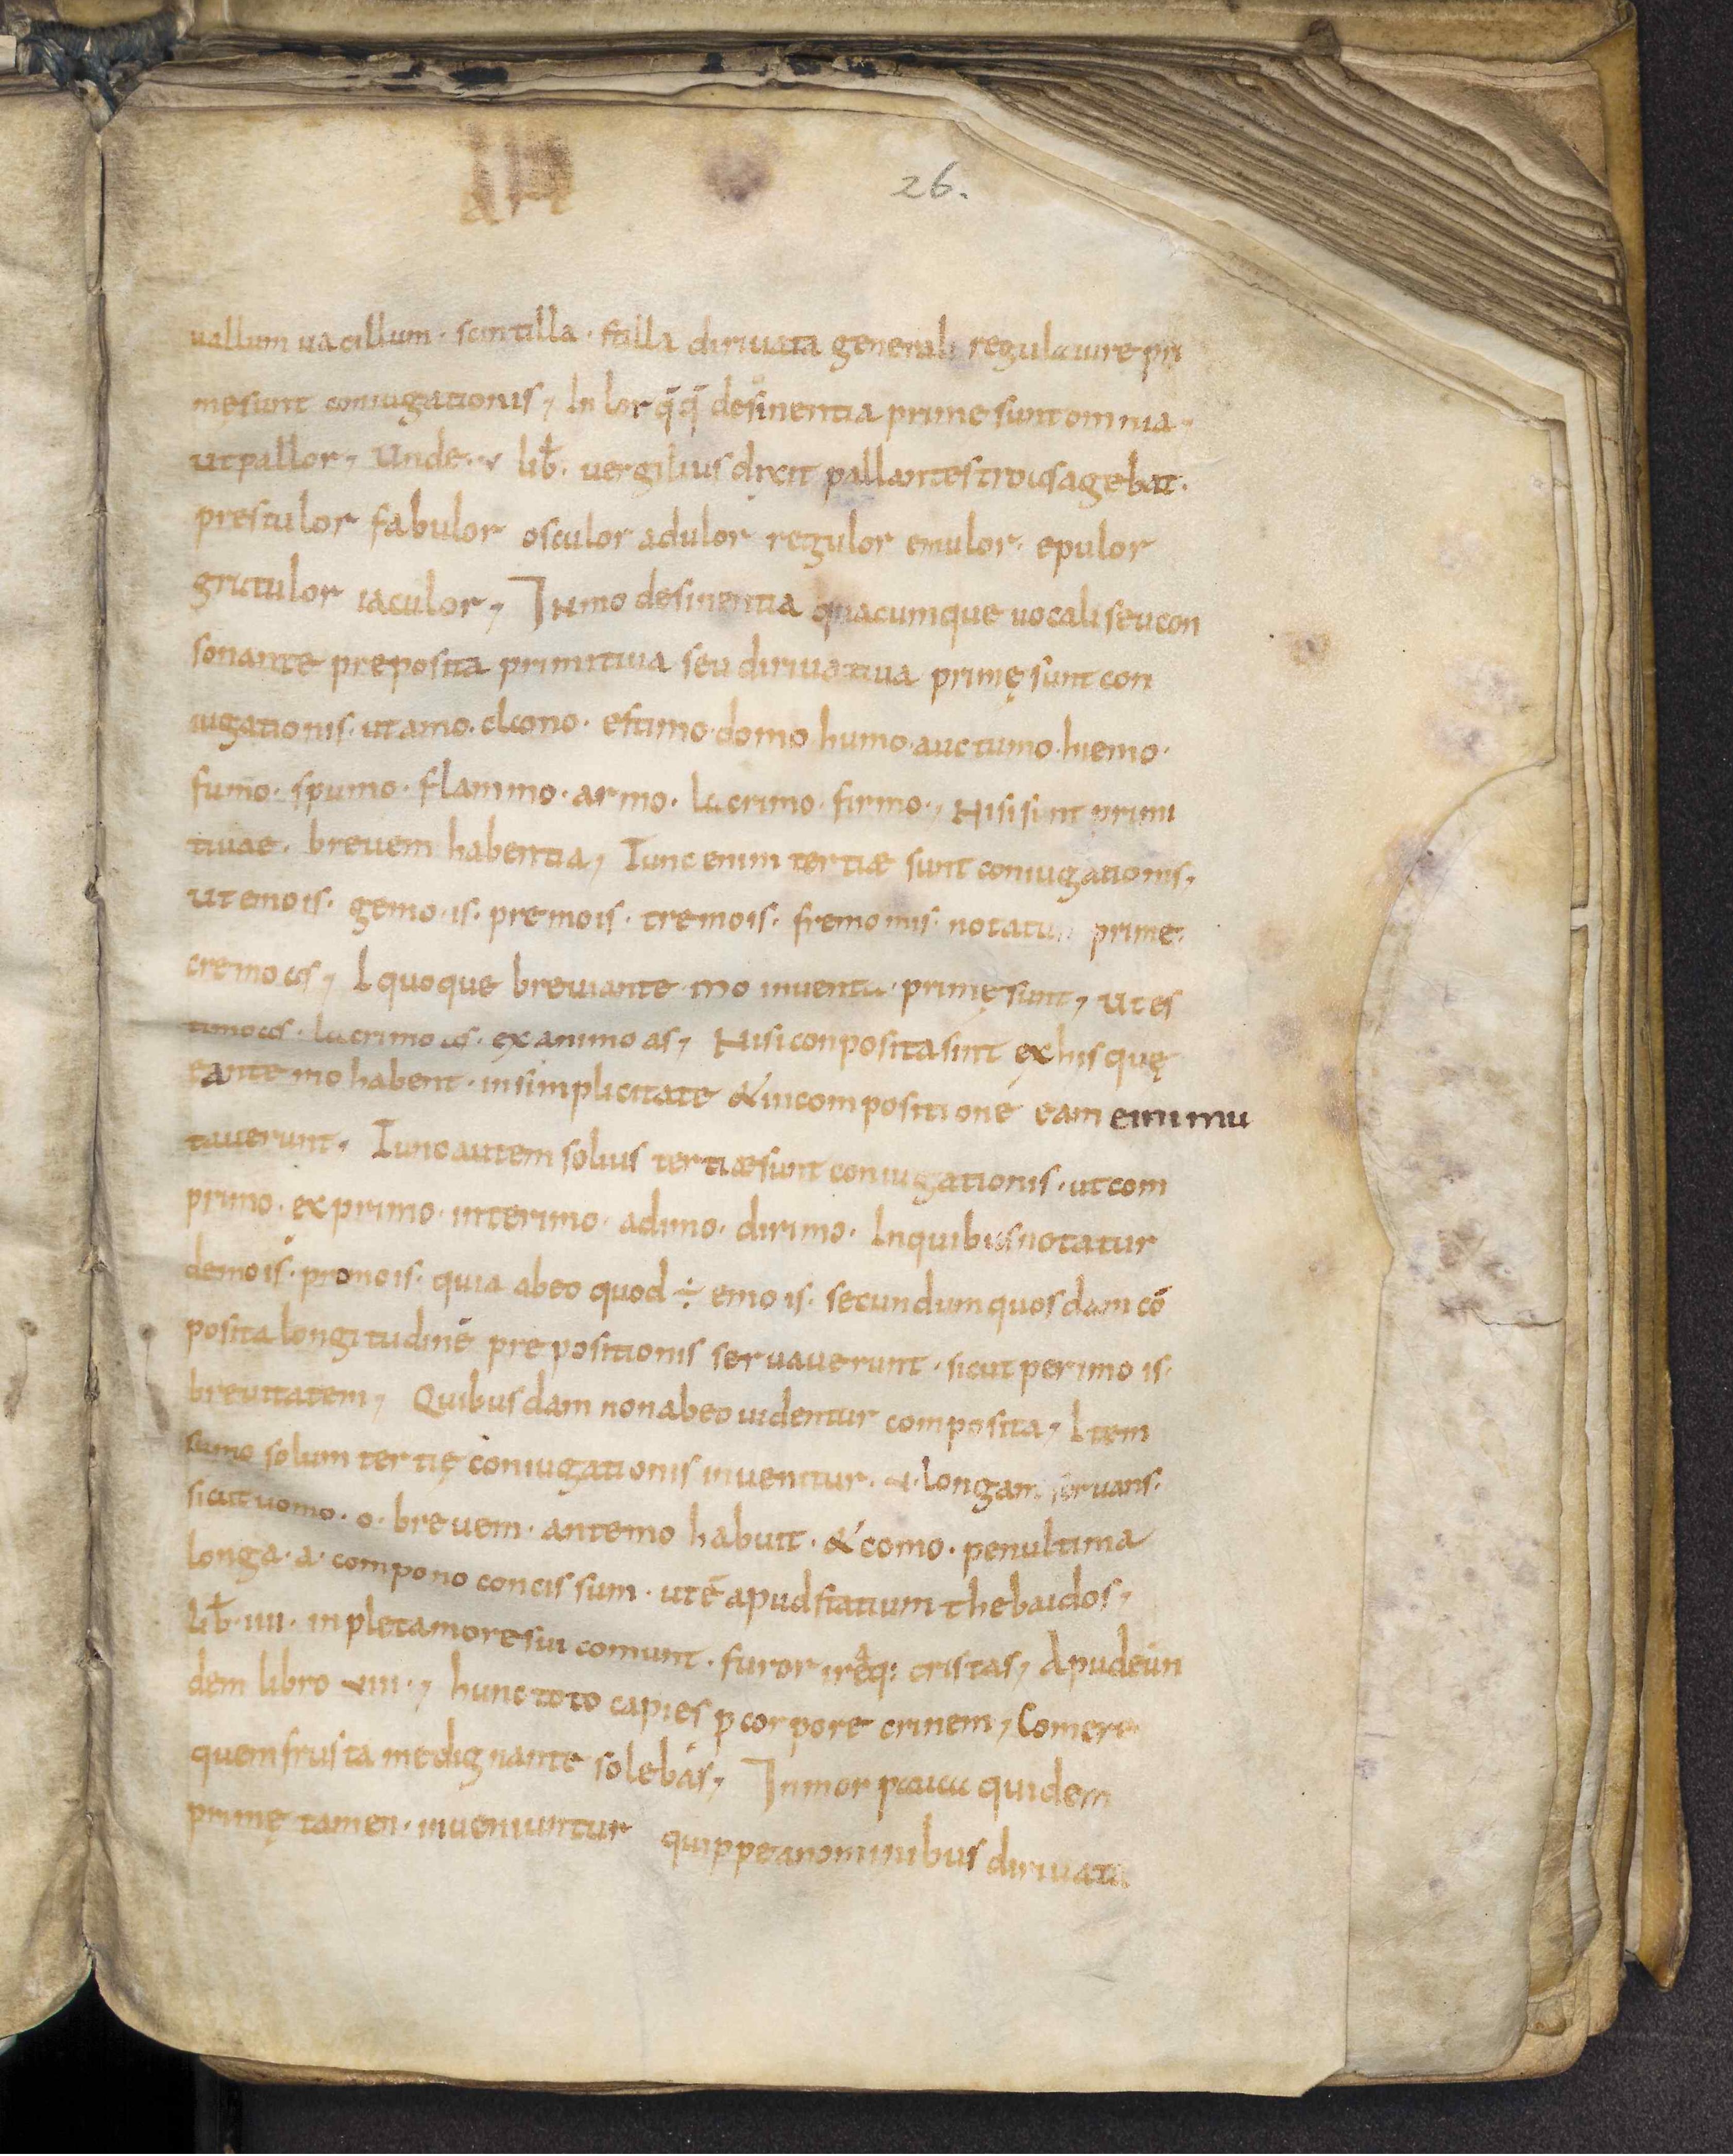 26.
uallum uacillum · scintilla · stilla diriuata generali regula iure pri
mę sunt coniugationis, In lor q̄q̄ desinentia prime sunt omnia ·
ut pallor, Unde · v lib̄. uergilius dixit pallantes troius agebat.
prestulor fabulor osculor adulor regulor emulor · epulor
gratulor iaculor, In mo desinentia quacumque uocali seu con
sonante preposita primitiua seu diriuatiua primę sunt con
iugationis · ut amo · clamo · estimo · domo humo · auctumo · hiemo ·
fumo · spumo · flammo · armo · lacrimo · firmo ·, Nisi sint primi
tiuae · breuem habentia, Tunc enim tertiæ sunt coniugationis.
ut emo is · gemo · is · premo is · tremo is · fremo mis · notatur prime ·
cremo as, I quoque breuiante mo inuenta · primę sunt, ut es
timo as · lacrimo as · examino as, Nisi conposita sint ex his quę
e ante mo habent · in simplicitate & in compositione eam enim mu
tauerunt, Tunc autem solius tertiæ sunt coniugationis · ut com
primo · exprimo · interimo · adimo · dirimo · In quibus notatur
demo is · promo is · quia ab eo quod ÷ emo is · secundum quosdam cō
posita longitudinē prepositionis seruauerunt · sicut perimo is ·
breuitatem, Quibusdam non ab eo uidentur composita, Item
sumo solum tertię coniugationis inuenitur · u · longam seruans ·
sicut uomo · o · breuem · ante mo habuit · & como · penultima
longa · a · compono concissum · ut ē apud statium thebaidos,
lib̄ · iiii · inplet amore sui comunt · furor iręq: cristas, Apud eun
dem libro viiii ·, hunc toto capies p corpore crinem, Comere
quem frusta me dignante solebas, In mor pauca quidem
primę tamen · inueniuntur quippe a nominibus diriuata